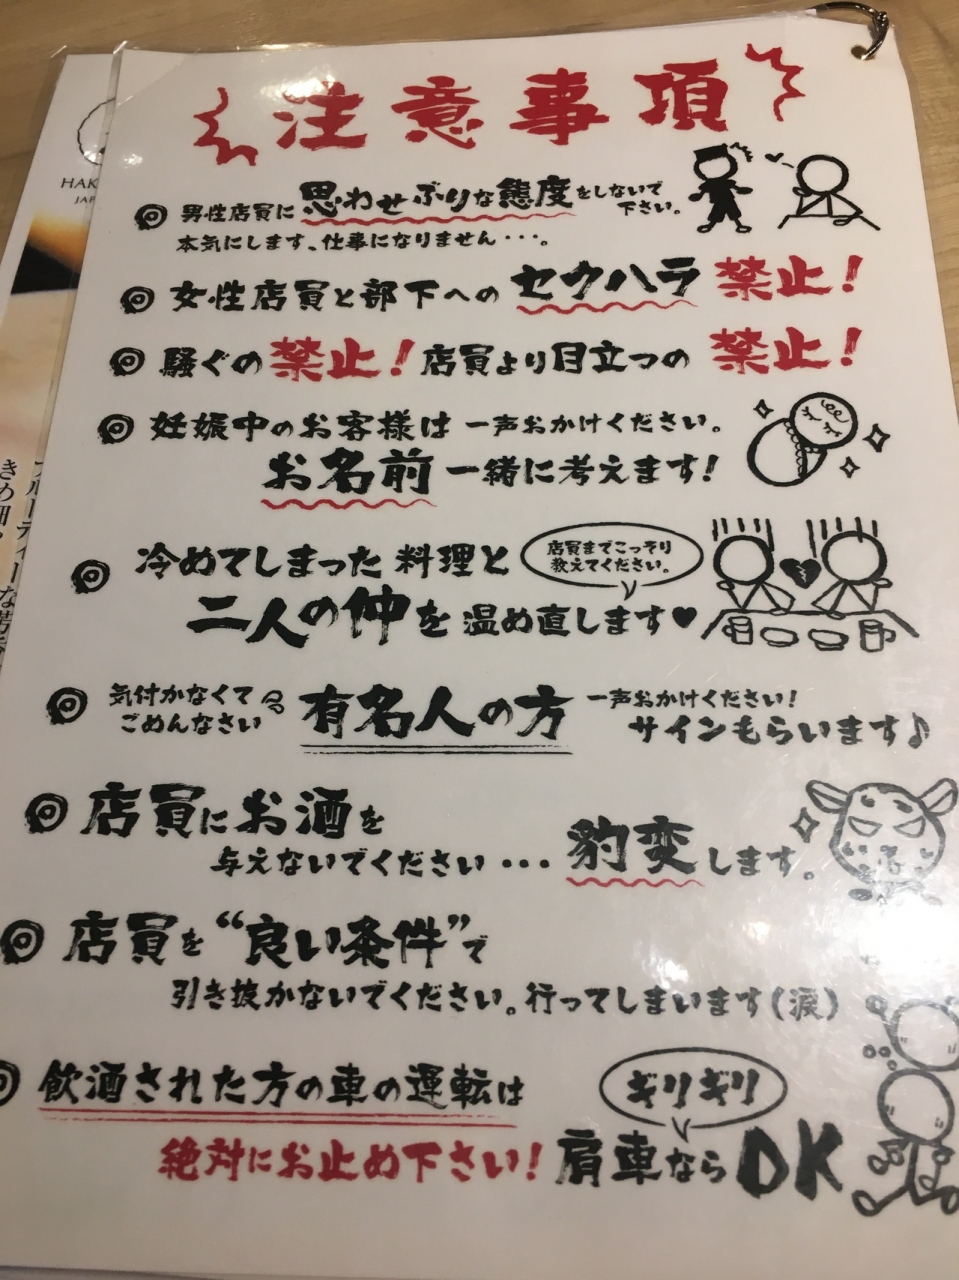 注意事項
男性店員に思わせぶりな態度をしないで下さい。
本気にします、仕事になりません・・・。
女性店員と部下へのセクハラ禁止！
騒ぐの禁止！店員より目立つの禁止！
妊娠中のお客様は一声おかけください。
お名前一緒に考えます！
冷めてしまった料理と
店員までこっそり
教えてください。
二人の仲を温め直します♥
気付かなくて
ごめんなさい
有名人の方
一声おかけください！
サインもらいます♪
店員にお酒を
与えないでください・・・豹変します。
店員を“良い条件”で
引き抜かないでください。行ってしまいます(涙)
飲酒された方の車の運転は
絶対にお止め下さい！
ギリギリ
肩車ならOK
HAK
JAP